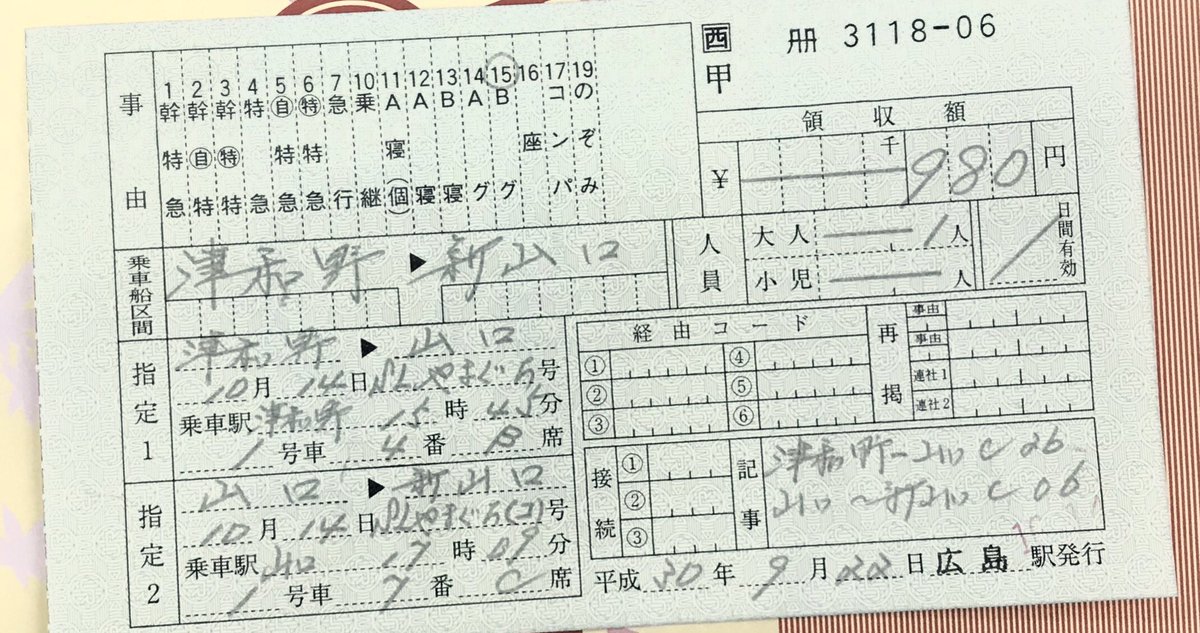 西 冊 3118-06
甲
事由
1 幹特急
2 幹自特
3 幹特特
4 特急
5 自特急
6 特特急
7 急行
10 乗継
11 A寝(個)
12 A寝
13 B寝
14 Aグ
15 Bグ
16 座
17 コンパ
19 のぞみ
領収額
¥ 千 980 円
人員 大人 1人
小児 人
日間有効
乗車船区間 津和野 ▶ 新山口
指定1 津和野 ▶ 山口
10月 14日 SLやまぐち号
乗車駅 津和野 15時 45分
1号車 4番 B席
指定2 山口 ▶ 新山口
10月 14日 SLやまぐち(コ)号
乗車駅 山口 17時 09分
1号車 7番 C席
経由コード
① ④
② ⑤
③ ⑥
再掲
事由
事由
連社1
連社2
接続 ① ② ③
記事 津和野-山口 C26
山口〜新山口 C06
平成 30年 9月 22日 広島 駅発行